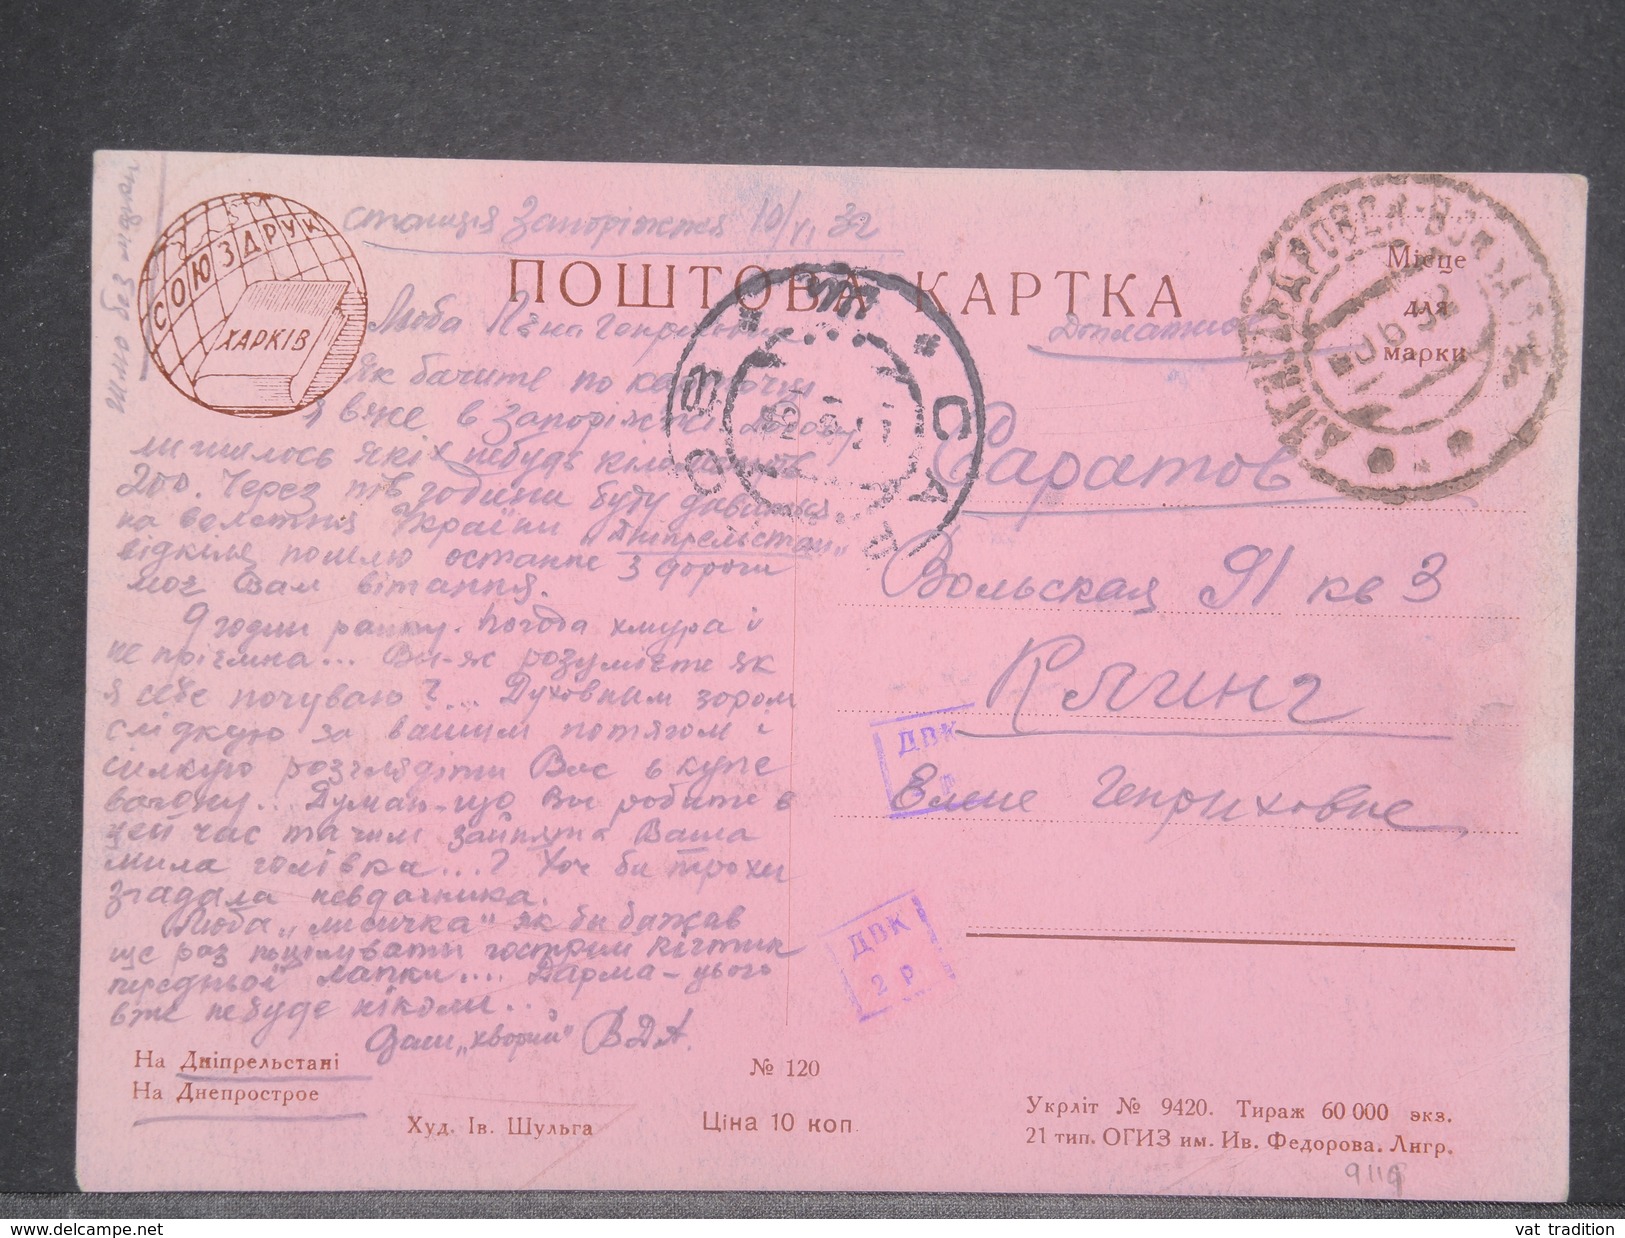 СОЮЗДРУК
ХАРКІВ
станція Запоріжжя 10/VI 32
ПОШТОВА КАРТКА
Місце
для
марки
Доплатное
Люба Лєна Генриховна
Як бачите по карточці
я вже в Запоріжжі. Додому
лишилось яких небудь кілометрів
200. Через пів години буду дивиться
на велетня України „Дніпрельстан"
відкіля пошлю останнє з дороги
моє Вам вітання.
9 годин ранку. Погода хмура і
не приємна... Ви-ж розумієте як
я себе почуваю?... Духовним зором
слідкую за вашим потягом і
силкую розглядіти Вас в купе
вагону... Думаю-що Ви робите в
цей час та чим зайнята Ваша
мила голівка...? Хоч би трохи
згадала невдачника.
Люба „лисичка" як би бажав
ще раз поцілувати гострий кігтик
передньої лапки.... Дарма-цього
вже не буде ніколи...
„хворий" ВДА.
Саратов
Вольская 91 кв 3
Клинг
Елене Генриховне
ДВК
ДВК
2 р.
На Дніпрельстані
На Днепрострое
Худ. Ів. Шульга
№ 120
Ціна 10 коп.
Укрліт № 9420. Тираж 60 000 экз.
21 тип. ОГИЗ им. Ив. Федорова. Лнгр.
vat tradition